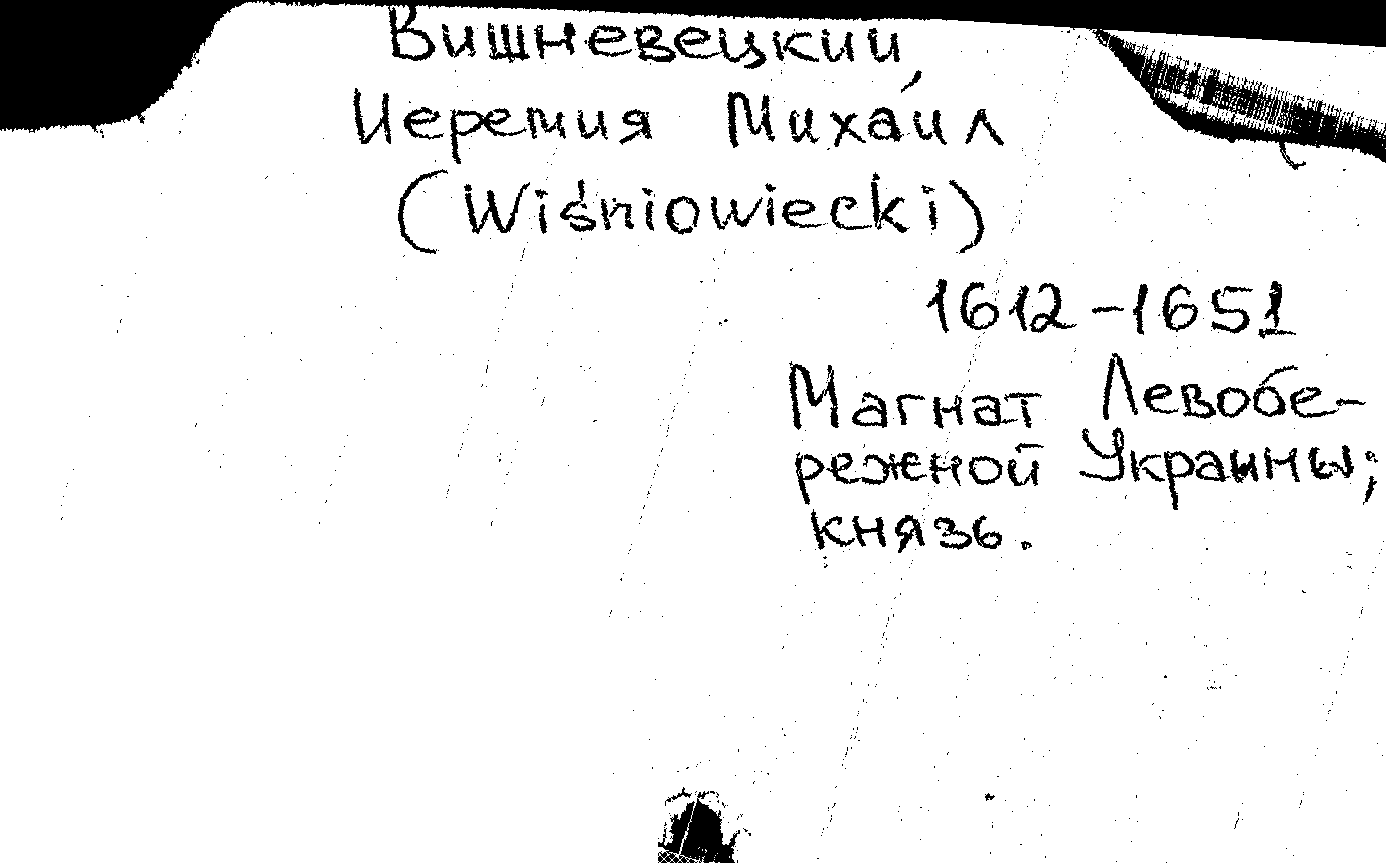 Вишневецкий,
Иеремия Михаил
(Wiśniowiecki)
1612-1651
Магнат Левобе-
режной Украины;
князь.